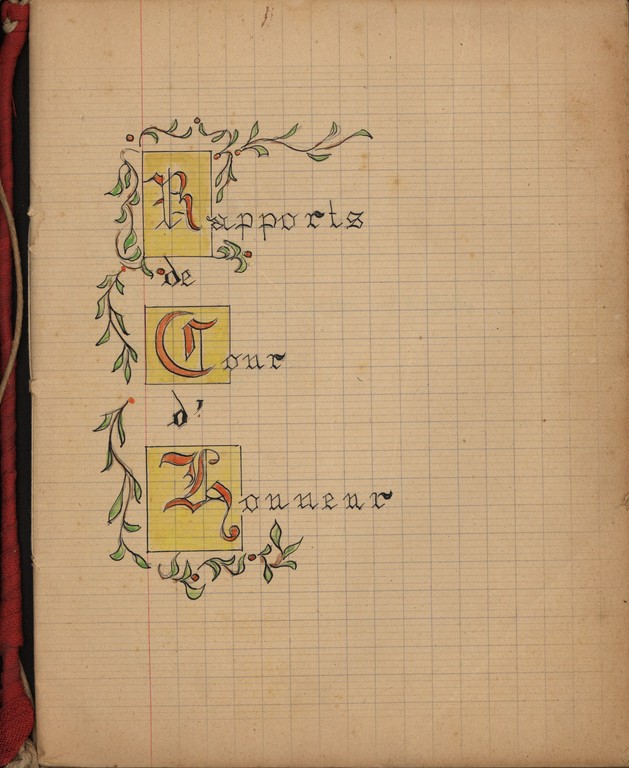 Rapports
de
Cour
d'
Honneur